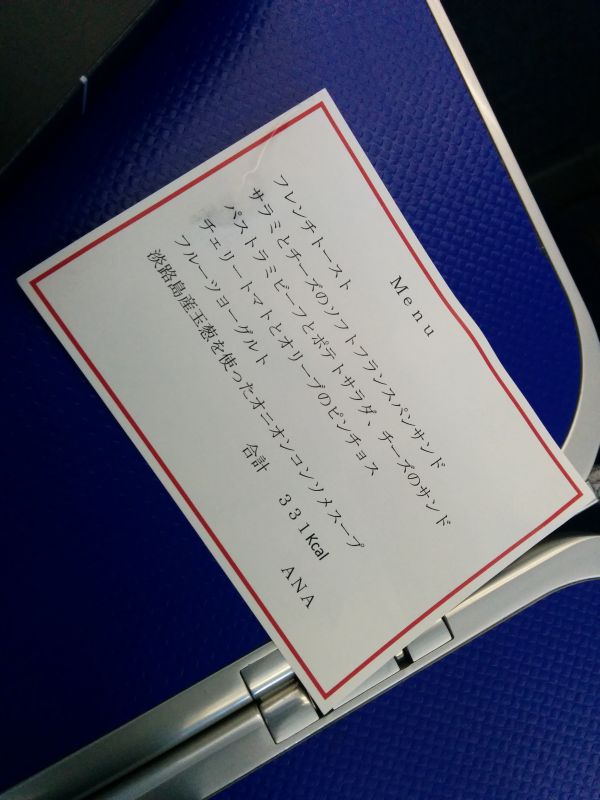 Menu
フレンチトースト
サラミとチーズのソフトフランスパンサンド
パストラミビーフとポテトサラダ、チーズのサンド
チェリートマトとオリーブのピンチョス
フルーツヨーグルト
淡路島産玉葱を使ったオニオンコンソメスープ
合計　３３１Kcal
ＡＮＡ